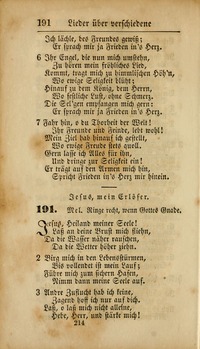 191 Lieder über verschiedene
Ich lächle, des Freundes gewiß;
Er sprach mir ja Frieden in's Herz.
6 Ihr Engel, die nun mich umstehn,
Zu hören mein fröhliches Lied,
Kommt, tragt mich zu himmlischen Höh'n,
Wo ewige Seligkeit blüht;
Hinauf zu dem König, dem Herrn,
Wo festliche Lust, ohne Schmerz,
Die Sel'gen empfangen mich gern:
Er sprach mir ja Frieden in's Herz.
7 Fahr hin, o du Thorheit der Welt!
Ihr Freunde und Feinde, lebt wohl!
Mein Ziel hab hinauf ich gestellt,
Wo ewige Freude stets quoll.
Gern lasse ich Alles für ihn,
Und dringe zur Seligkeit ein!
Er trägt auf den Armen mich hin,
Spricht Frieden in's Herz mir hinein.
Jesus, mein Erlöser.
191. Mel. Ringe recht, wenn Gottes Gnade.
Jesus, Heiland meiner Seele!
Laß an deine Brust mich fliehn,
Da die Wasser näher rauschen,
Da die Wetter höher ziehn.
2 Birg mich in den Lebensstürmen,
Bis vollendet ist mein Lauf;
Führe mich zum sichern Hafen,
Nimm dann meine Seele auf.
3 Andre Zuflucht hab ich keine,
Zagend hoff ich nur auf dich.
Laß, o laß mich nicht alleine,
Hebe, Herr, und stärke mich!
214